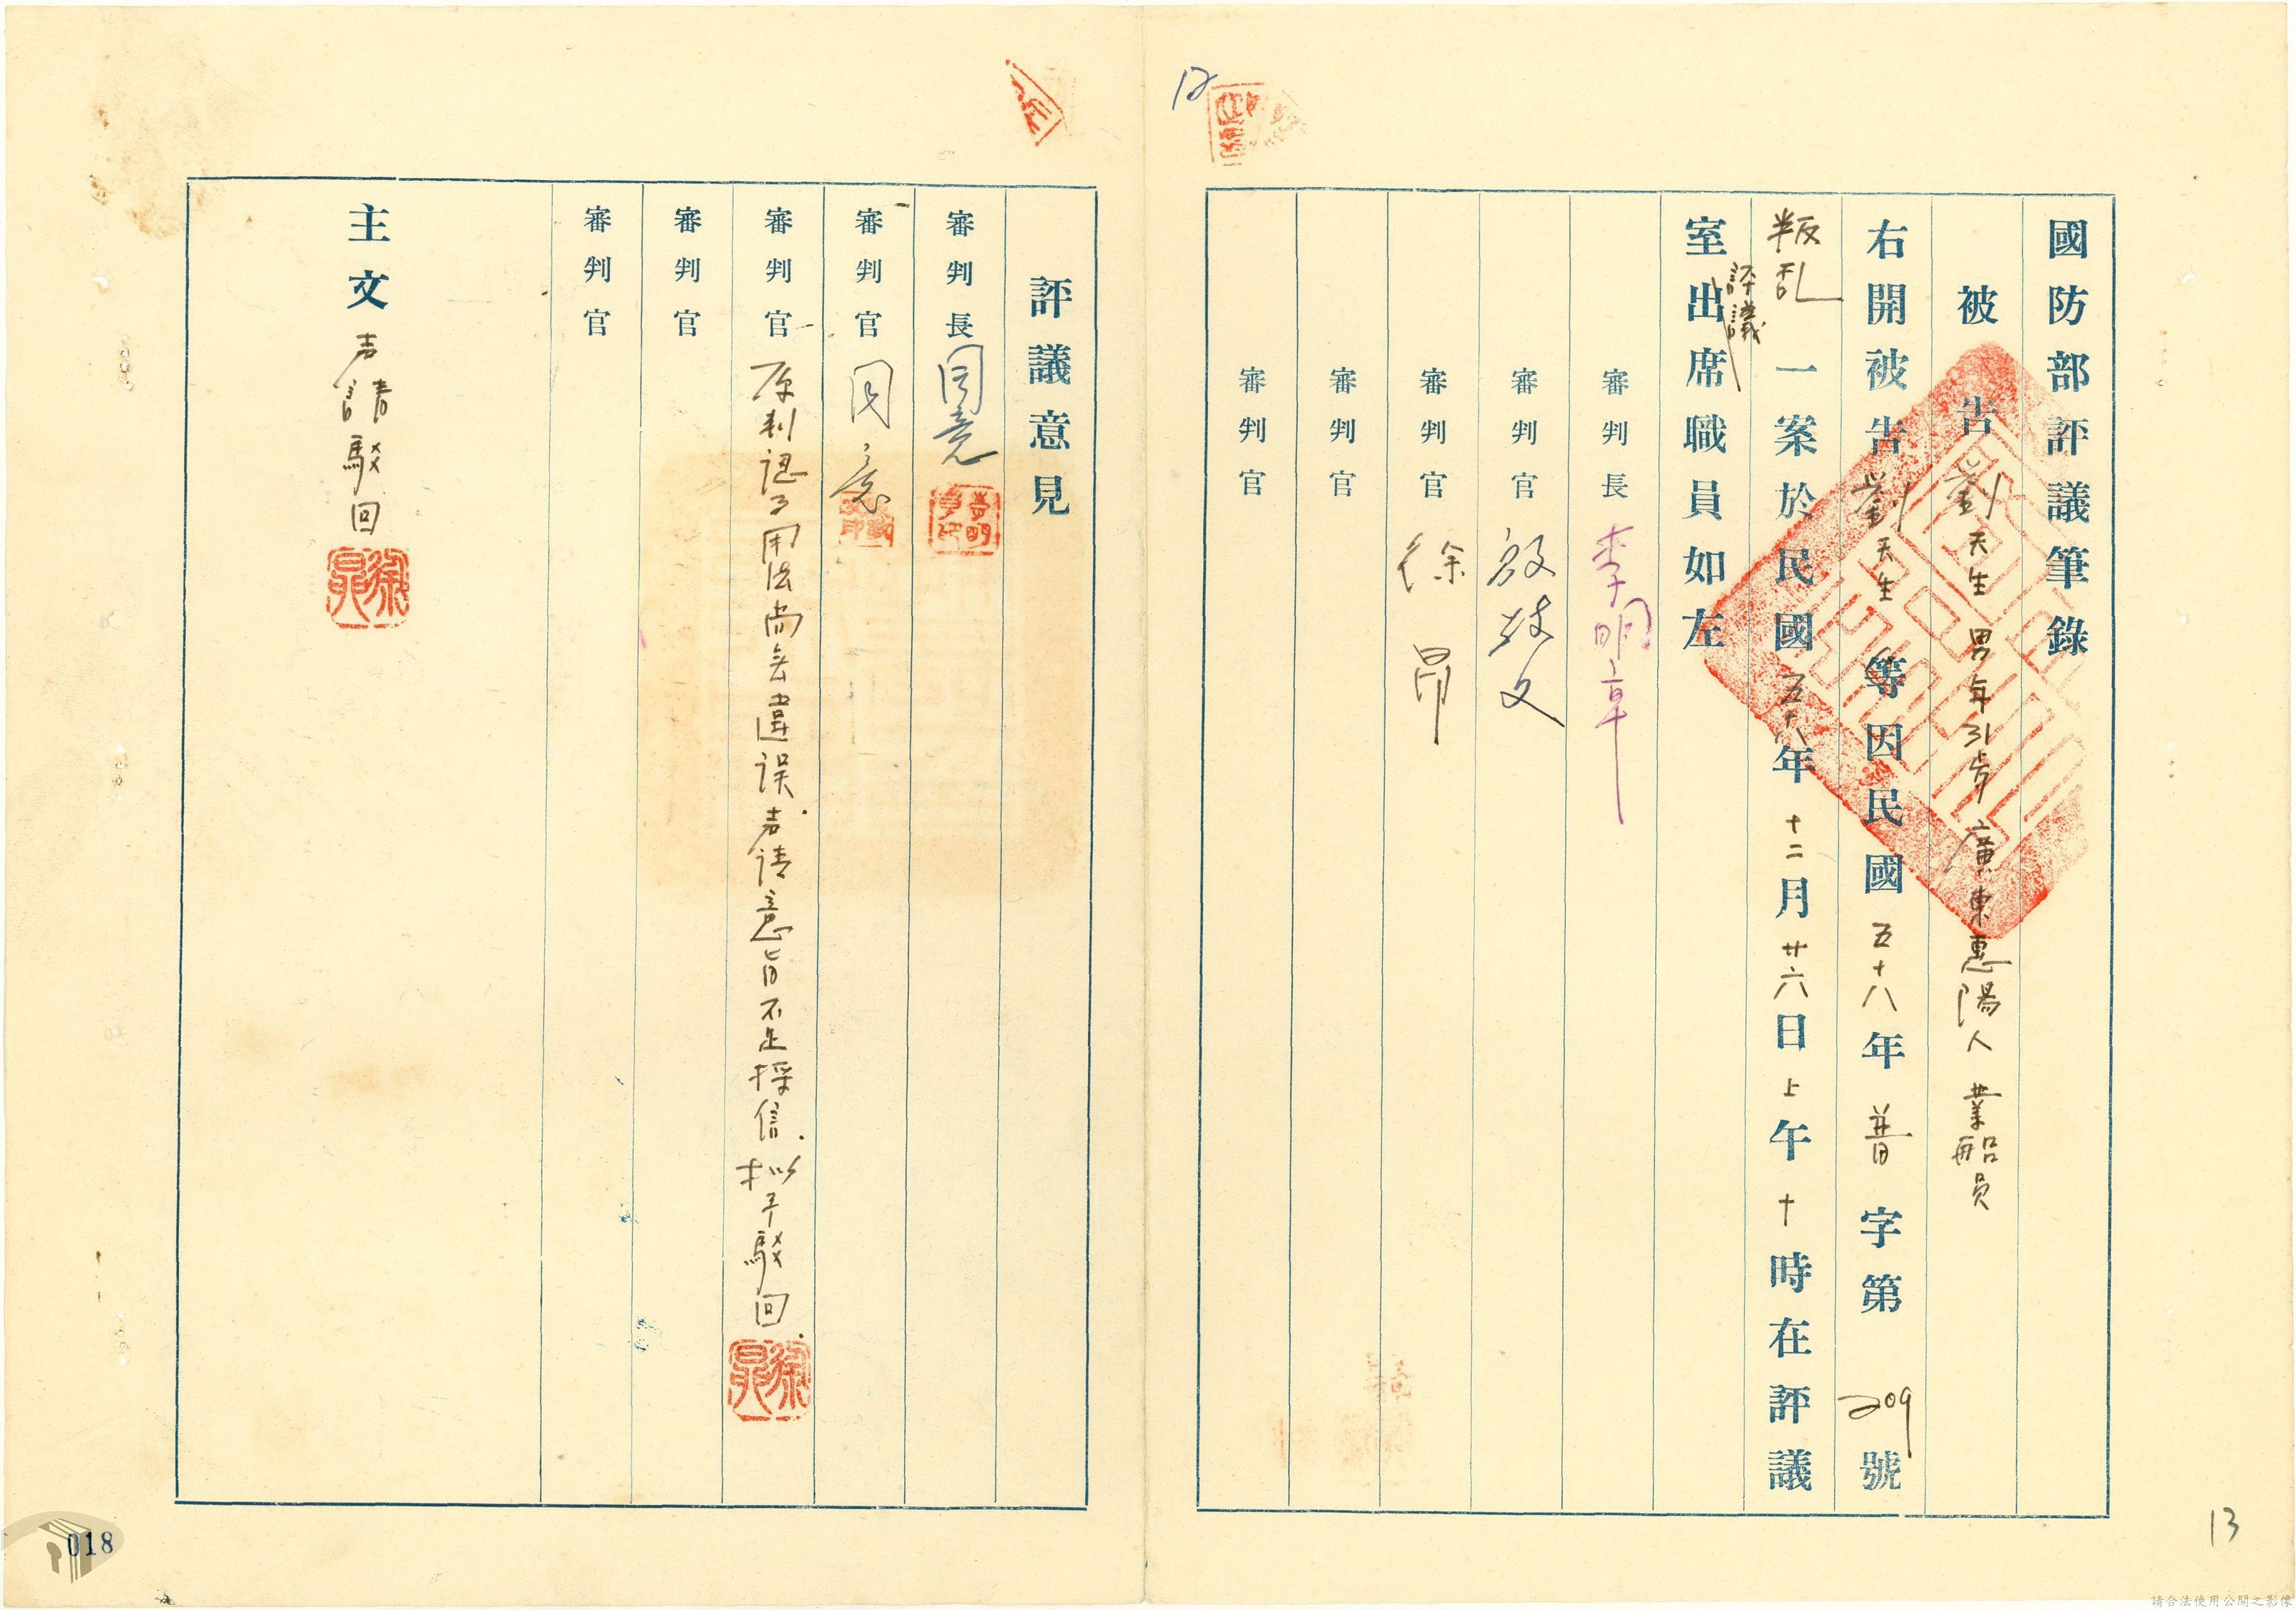 國防部評議筆錄
被告劉天生 男年31歲廣東惠陽人 業船員
右開被告劉天生等因民國五十八年普字第209號
叛乱一案於民國五十八年十二月廿六日上午十時在評議
評議
室出席職員如左
審判長 李明章
審判官
審判官 徐昂
審判官
審判官
12
13
評議意見
審判長 同意
審判官 同意
審判官 原判認事用法尚無違误.声请意旨不足採信.拟予駁回.
審判官
審判官
主文 声請駁回
018
請合法使用公開之影像